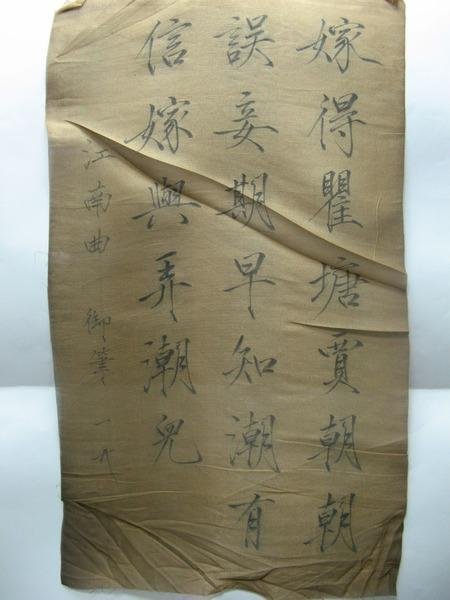 嫁得瞿塘賈朝朝
誤妾期早知潮有
信嫁與弄潮兒
江南曲 御筆 一